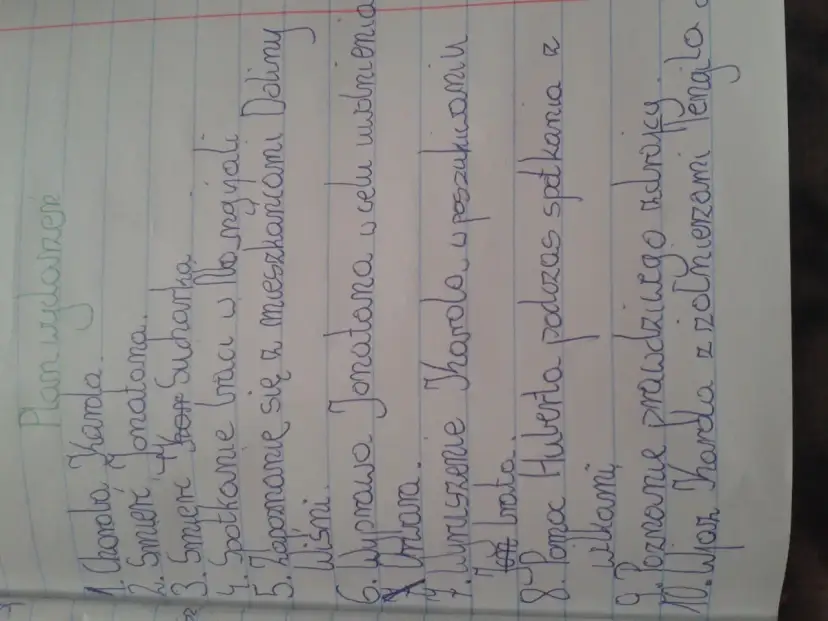 Plan wydarzeń
1. Choroba Karola.
2. Śmierć Jonatana.
3. Śmierć Sucharka
4. Spotkanie braci w Nangijali
5. Zapoznanie się z mieszkańcami Doliny
Wiśni.
6. Wyprawa Jonatana w celu uwolnienia
Orwara.
7. Wyruszenie Karola w poszukiwaniu
brata.
8. Pomoc Huberta podczas spotkania z
wilkami
9. Poznanie prawdziwego zdrajcy.
10. Wjazd Karola z żołnierzami Tengila.